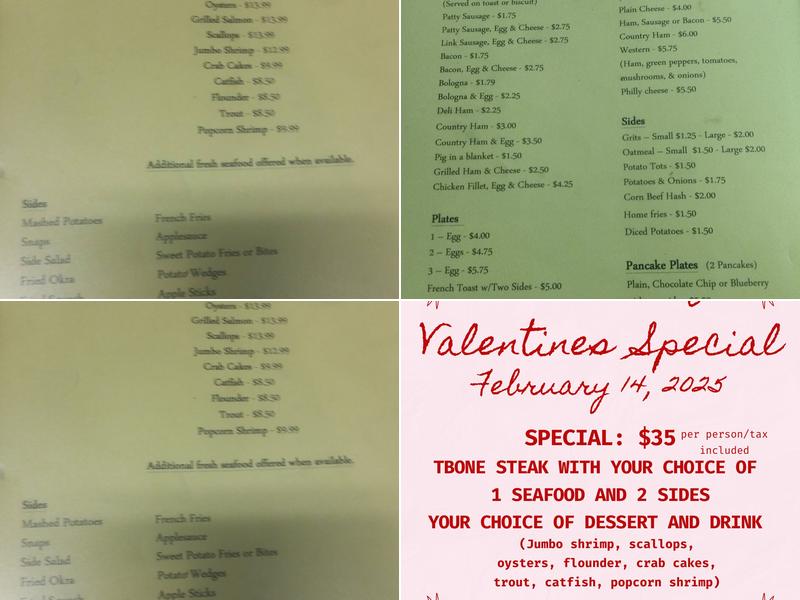 Oysters - $13.99
Grilled Salmon - $13.99
Scallops - $13.99
Jumbo Shrimp - $12.99
Crab Cakes - $9.99
Catfish - $8.50
Flounder - $8.50
Trout - $8.50
Popcorn Shrimp - $9.99
Additional fresh seafood offered when available.
Sides
Mashed Potatoes
Snaps
Side Salad
Fried Okra
French Fries
Applesauce
Sweet Potato Fries or Bites
Potato Wedges
Apple Sticks
(Served on toast or biscuit)
Patty Sausage - $1.75
Patty Sausage, Egg & Cheese - $2.75
Link Sausage, Egg & Cheese - $2.75
Bacon - $1.75
Bacon, Egg & Cheese - $2.75
Bologna - $1.79
Bologna & Egg - $2.25
Deli Ham - $2.25
Country Ham - $3.00
Country Ham & Egg - $3.50
Pig in a blanket - $1.50
Grilled Ham & Cheese - $2.50
Chicken Fillet, Egg & Cheese - $4.25
Plates
1 – Egg - $4.00
2 – Eggs - $4.75
3 – Egg - $5.75
French Toast w/Two Sides - $5.00
Plain Cheese - $4.00
Ham, Sausage or Bacon - $5.50
Country Ham - $6.00
Western - $5.75
(Ham, green peppers, tomatoes,
mushrooms, & onions)
Philly cheese - $5.50
Sides
Grits – Small $1.25 - Large - $2.00
Oatmeal – Small $1.50 - Large $2.00
Potato Tots - $1.50
Potatoes & Onions - $1.75
Corn Beef Hash - $2.00
Home fries - $1.50
Diced Potatoes - $1.50
Pancake Plates (2 Pancakes)
Plain, Chocolate Chip or Blueberry
Oysters - $13.99
Grilled Salmon - $13.99
Scallops - $13.99
Jumbo Shrimp - $12.99
Crab Cakes - $9.99
Catfish - $8.50
Flounder - $8.50
Trout - $8.50
Popcorn Shrimp - $9.99
Additional fresh seafood offered when available.
Sides
Mashed Potatoes
Snaps
Side Salad
Fried Okra
French Fries
Applesauce
Sweet Potato Fries or Bites
Potato Wedges
Apple Sticks
Valentines Special
February 14, 2025
SPECIAL: $35 per person/tax
included
TBONE STEAK WITH YOUR CHOICE OF
1 SEAFOOD AND 2 SIDES
YOUR CHOICE OF DESSERT AND DRINK
(Jumbo shrimp, scallops,
oysters, flounder, crab cakes,
trout, catfish, popcorn shrimp)